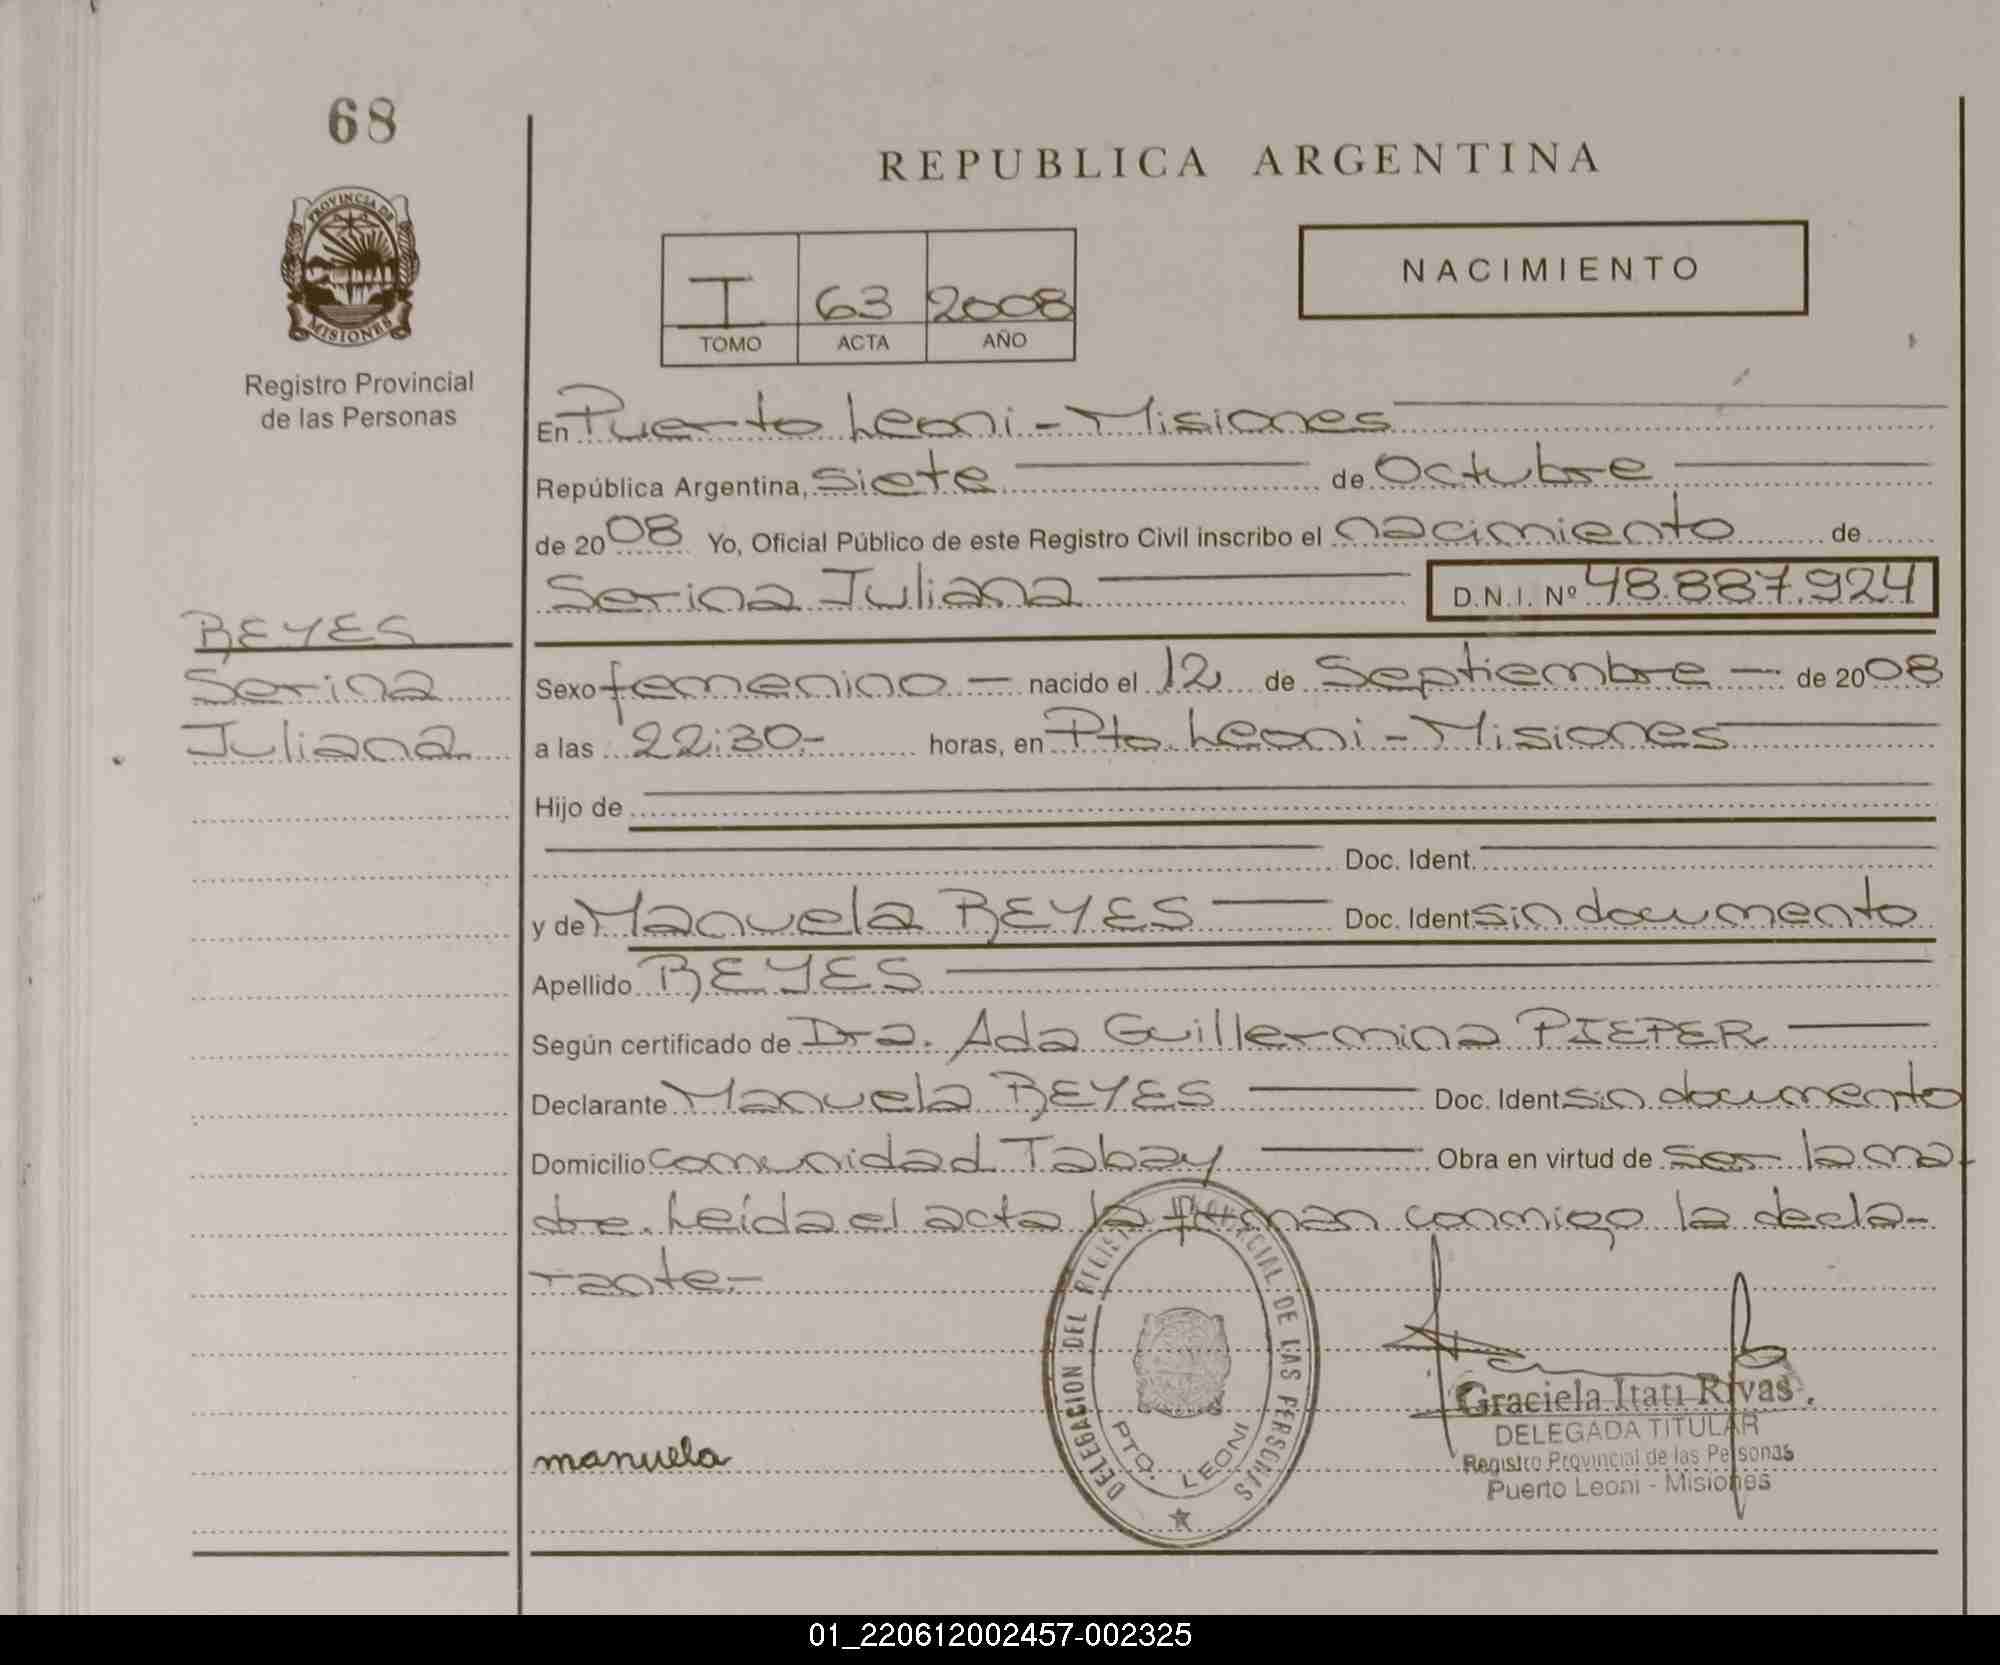 68
REPUBLICA ARGENTINA
PROVINCIA DE MISIONES
Registro Provincial
de las Personas
NACIMIENTO
I 63 2008
TOMO ACTA AÑO
En Puerto Leoni - Misiones
República Argentina, siete de Octubre
de 2008 Yo, Oficial Público de este Registro Civil inscribo el nacimiento de
Serina Juliana D.N.I. Nº 48.887.924
REYES
Serina
Juliana
Sexo femenino - nacido el 12 de Septiembre - de 2008
a las 22:30.- horas, en Pto. Leoni - Misiones
Hijo de
Doc. Ident.
y de Manuela REYES Doc. Ident. sin documento
Apellido REYES
Según certificado de Dra. Ada Guillermina PIEPER
Declarante Manuela REYES Doc. Ident. sin documento
Domicilio comunidad Tabay Obra en virtud de ser la ma-
dre. Leída el acta la firman conmigo la decla-
rante.-
manuela
DELEGACION DEL REGISTRO PROVINCIAL DE LAS PERSONAS
PTO. LEONI
Graciela Itatí Rivas
DELEGADA TITULAR
Registro Provincial de las Personas
Puerto Leoni - Misiones
01_220612002457-002325